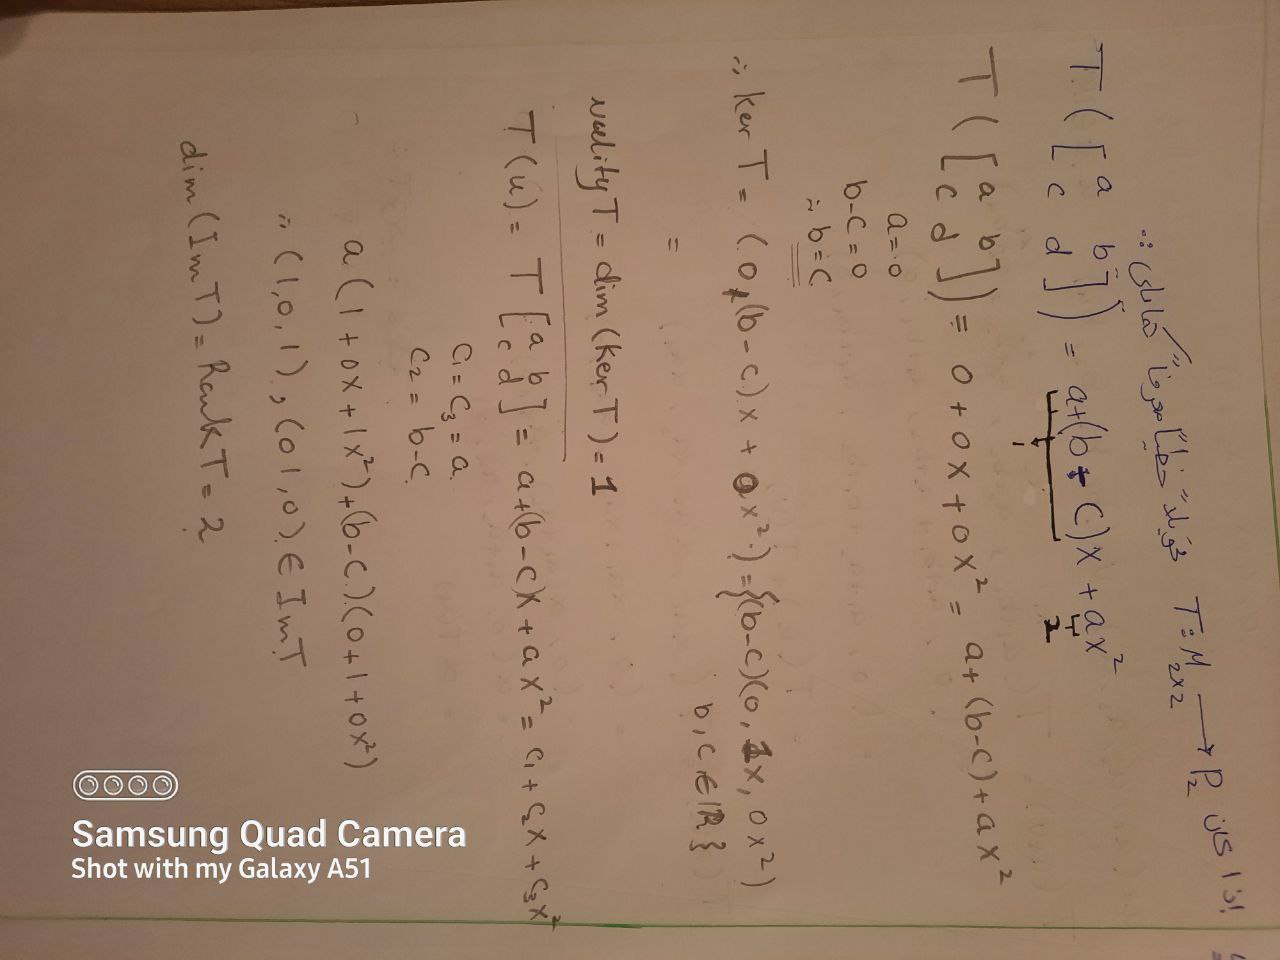 إذا كان T: M₂ₓ₂ → P₂
تحويلاً خطياً معرفاً كما يلي :-
T([a b c d]) = a+(b-c)x + ax²
1 2
T([a b c d]) = 0 + 0x + 0x² = a+(b-c)+ax²
a=0
b-c=0
∴ b=c
∴ Ker T = (0,(b-c)x + 0x²) = {(b-c)(0, 1x, 0x²)
b, c ∈ IR}
=
nullity T = dim(Ker T) = 1
T(u) = T[a b c d] = a+(b-c)x + ax² = c₁ + c₂x + c₃x²
c₁ = c₃ = a
c₂ = b-c
a(1+0x+1x²)+(b-c).(0+1+0x²)
∴ (1,0,1), (01,0) ∈ ImT
dim(ImT) = Rank T = 2
Samsung Quad Camera
Shot with my Galaxy A51